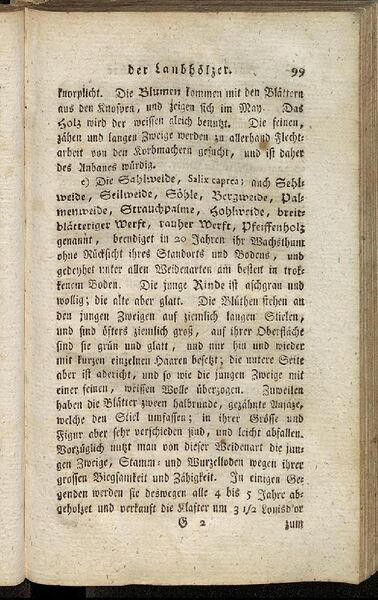 der Laubhölzer. 99
knorplicht. Die Blumen kommen mit den Blättern
aus den Knospen, und zeigen sich im May. Das
Holz wird der weissen gleich benutzt. Die feinen,
zähen und langen Zweige werden zu allerhand Flecht-
arbeit von den Korbmachern gesucht, und ist daher
des Anbaues würdig.
e) Die Sahlweide, Salix caprea; auch Sehl-
weide, Seilweide, Söhle, Bergweide, Pal-
menweide, Strauchpalme, Hohlweide, breit-
blätteriger Werft, rauher Werft, Pfeiffenholz
genannt, beendiget in 20 Jahren ihr Wachsthum
ohne Rücksicht ihres Standorts und Bodens, und
gedeyhet unter allen Weidenarten am besten in trok-
kenem Boden. Die junge Rinde ist aschgrau und
wollig; die alte aber glatt. Die Blüthen stehen an
den jungen Zweigen auf ziemlich langen Stielen,
und sind öfters ziemlich groß, auf ihrer Oberfläche
sind sie grün und glatt, und nur hin und wieder
mit kurzen einzelnen Haaren besetzt; die untere Seite
aber ist adericht, und so wie die jungen Zweige mit
einer feinen, weissen Wolle überzogen. Zuweilen
haben die Blätter zween halbrunde, gezähnte Ansätze,
welche den Stiel umfassen; in ihrer Grösse und
Figur aber sehr verschieden sind, und leicht abfallen.
Vorzüglich nutzt man von dieser Weidenart die jun-
gen Zweige, Stamm- und Wurzelloden wegen ihrer
grossen Biegsamkeit und Zähigkeit. In einigen Ge-
genden werden sie deswegen alle 4 bis 5 Jahre ab-
geholzet und verkauft die Klafter um 3 1/2 Louisd'or
G 2 zum